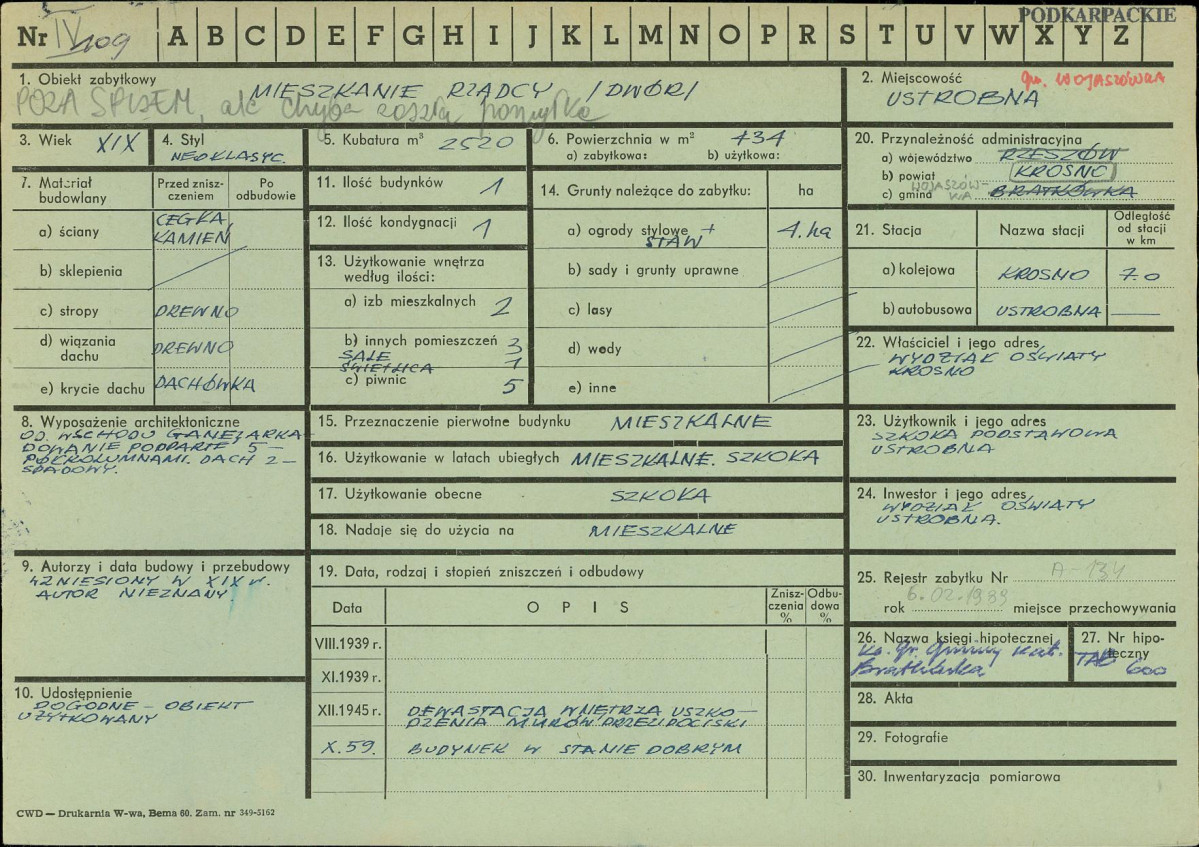 PODKARPACKIE
Nr IV/109 A B C D E F G H I J K L M N O P R S T U V W X Y Z
1. Obiekt zabytkowy
MIESZKANIE RZĄDCY /DWÓR/
POZA SPISEM, ale chyba zaszła pomyłka
2. Miejscowość
gm. WOJASZÓWKA
USTROBNA
3. Wiek XIX
4. Styl
NEOKLASYC.
5. Kubatura m³ 2520
6. Powierzchnia w m² 434
a) zabytkowa: b) użytkowa:
7. Materiał budowlany
Przed zniszczeniem
Po odbudowie
a) ściany
CEGŁA,
KAMIEŃ
b) sklepienia
c) stropy DREWNO
d) wiązania dachu DREWNO
e) krycie dachu DACHÓWKA
8. Wyposażenie architektoniczne
OD. WSCHODU GANEK, ARKA-
DOWANIE PODPARTE 5-
PÓŁKOLUMNAMI. DACH 2-
SPADOWY.
9. Autorzy i data budowy i przebudowy
WZNIESIONY W XIX W.
AUTOR NIEZNANY
10. Udostępnienie
DOGODNE - OBIEKT
UŻYTKOWANY
11. Ilość budynków 1
12. Ilość kondygnacji 1
13. Użytkowanie wnętrza
według ilości:
a) izb mieszkalnych 2
b) innych pomieszczeń 3
SALE
ŚWIETLICA 1
c) piwnic 5
14. Grunty należące do zabytku: ha
a) ogrody stylowe +
STAW
4. ha
b) sady i grunty uprawne
c) lasy
d) wody
e) inne
15. Przeznaczenie pierwotne budynku MIESZKALNE
16. Użytkowanie w latach ubiegłych MIESZKALNE. SZKOŁA
17. Użytkowanie obecne SZKOŁA
18. Nadaje się do użycia na MIESZKALNE
19. Data, rodzaj i stopień zniszczeń i odbudowy
Data
O P I S
Zniszczenia %
Odbudowa %
VIII.1939 r.
XI.1939 r.
XII.1945 r. DEWASTACJA WNĘTRZA USZKO-
DZENIA MURÓW PRZEZ POCISKI
X.59. BUDYNEK W STANIE DOBRYM
20. Przynależność administracyjna
a) województwo RZESZÓW
b) powiat KROSNO
WOJASZÓW-
KA
c) gmina BRATKÓWKA
21. Stacja
Nazwa stacji
Odległość
od stacji
w km
a) kolejowa KROSNO 7.0
b) autobusowa USTROBNA
22. Właściciel i jego adres
WYDZIAŁ OŚWIATY
KROSNO
23. Użytkownik i jego adres
SZKOŁA PODSTAWOWA
USTROBNA
24. Inwestor i jego adres
WYDZIAŁ OŚWIATY
USTROBNA.
25. Rejestr zabytku Nr A-134
rok 6.02.1989 miejsce przechowywania
26. Nazwa księgi hipotecznej
Ks. gr. Gminy kat.
Bratkówka
27. Nr hipoteczny
TAB 600
28. Akta
29. Fotografie
30. Inwentaryzacja pomiarowa
CWD — Drukarnia W-wa, Bema 60. Zam. nr 349-5162